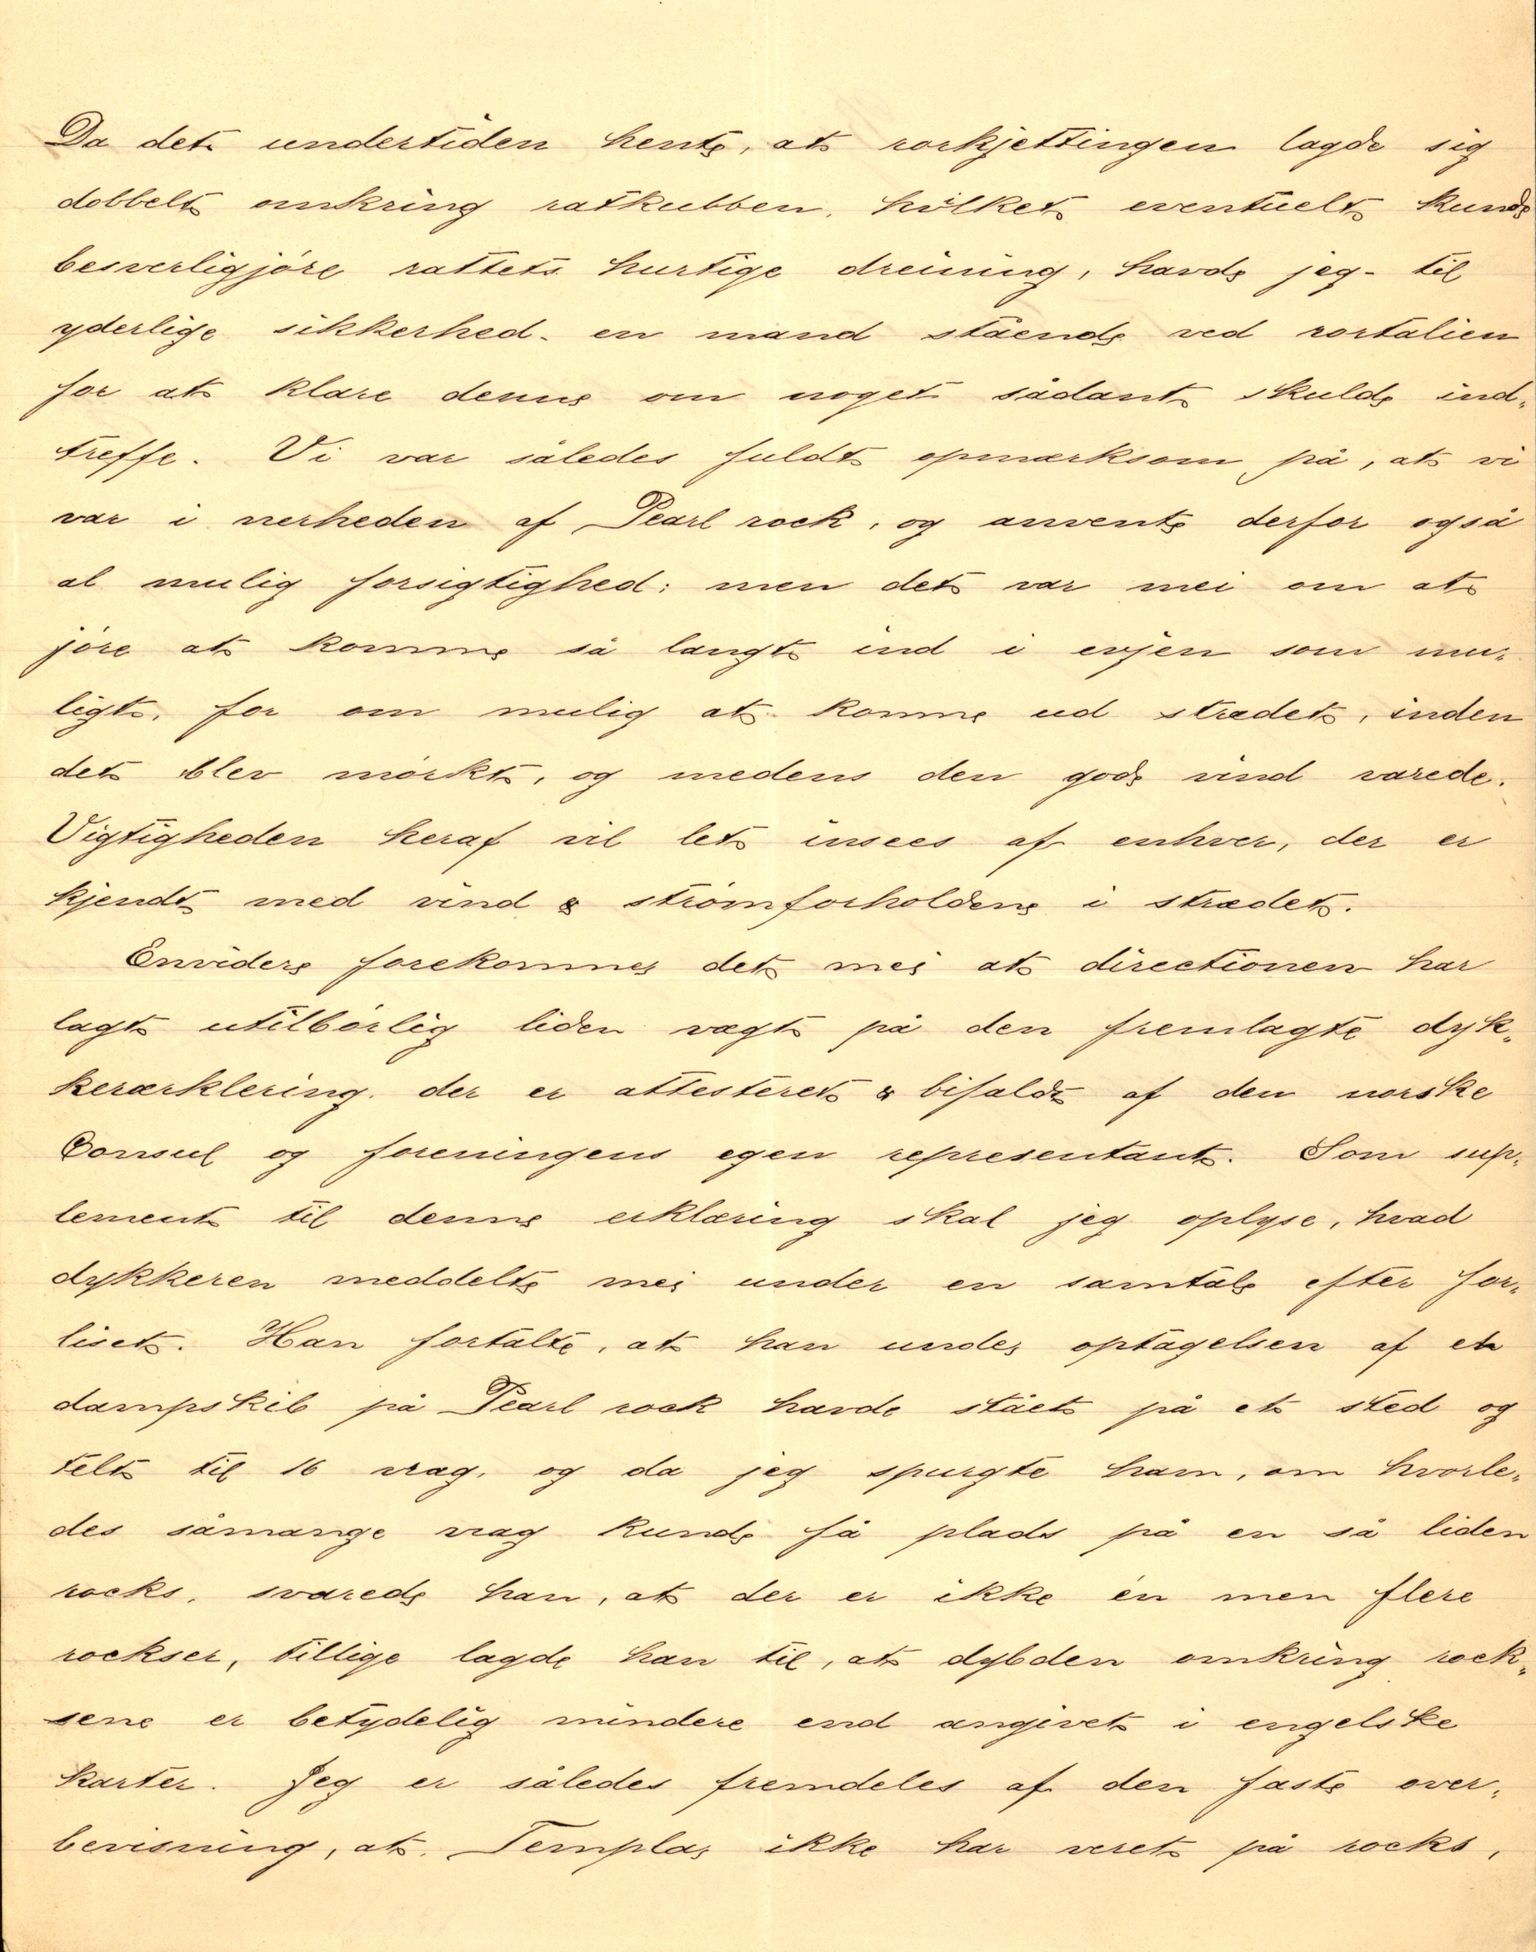 Da det undertiden hente, at rorkjettingen lagde sig
dobbelt omkring ratkubben, hvilket eventuelt kunde
besverligjøre rattets hurtige dreining, havde jeg - til
yderlige sikkerhed - en mand stående ved rortalien
for at klare denne om noget sådant skulde ind-
treffe. Vi var således fuldt opmærksom på, at vi
var i nerheden af Pearl rock, og anvente derfor også
al mulig forsigtighed; men det var mei om at
jøre at komme så langt ind i evjen som mu-
ligt, for om mulig at komme ud strædet, inden
det blev mørkt, og medens den gode vind varede.
Vigtigheden heraf vil let insees af enhver, der er
kjendt med vind & strømforholdene i strædet.
Envidere forekommer det mei at directionen har
lagt utilbørlig liden vægt på den fremlagte dyk-
kerærklering, der er attesteret & bifaldt af den norske
Consul og foreningens egen representant. Som sup-
lement til denne erklæring skal jeg oplyse, hvad
dykkeren meddelte mei under en samtale efter for-
liset. Han fortalte, at han under optagelsen af et
dampskib på Pearl rock havde stået på et sted og
telt til 16 vrag, og da jeg spurgte ham, om hvorle-
des såmange vrag kunde få plads på en så liden
rocks, svarede han, at der er ikke én men flere
rockser, tillige lagde han til, at dybden omkring rock-
sene er betydelig mindre end angivet i engelske
karter. Jeg er således fremdeles af den faste over-
bevisning, at Templar ikke har veret på rocks,